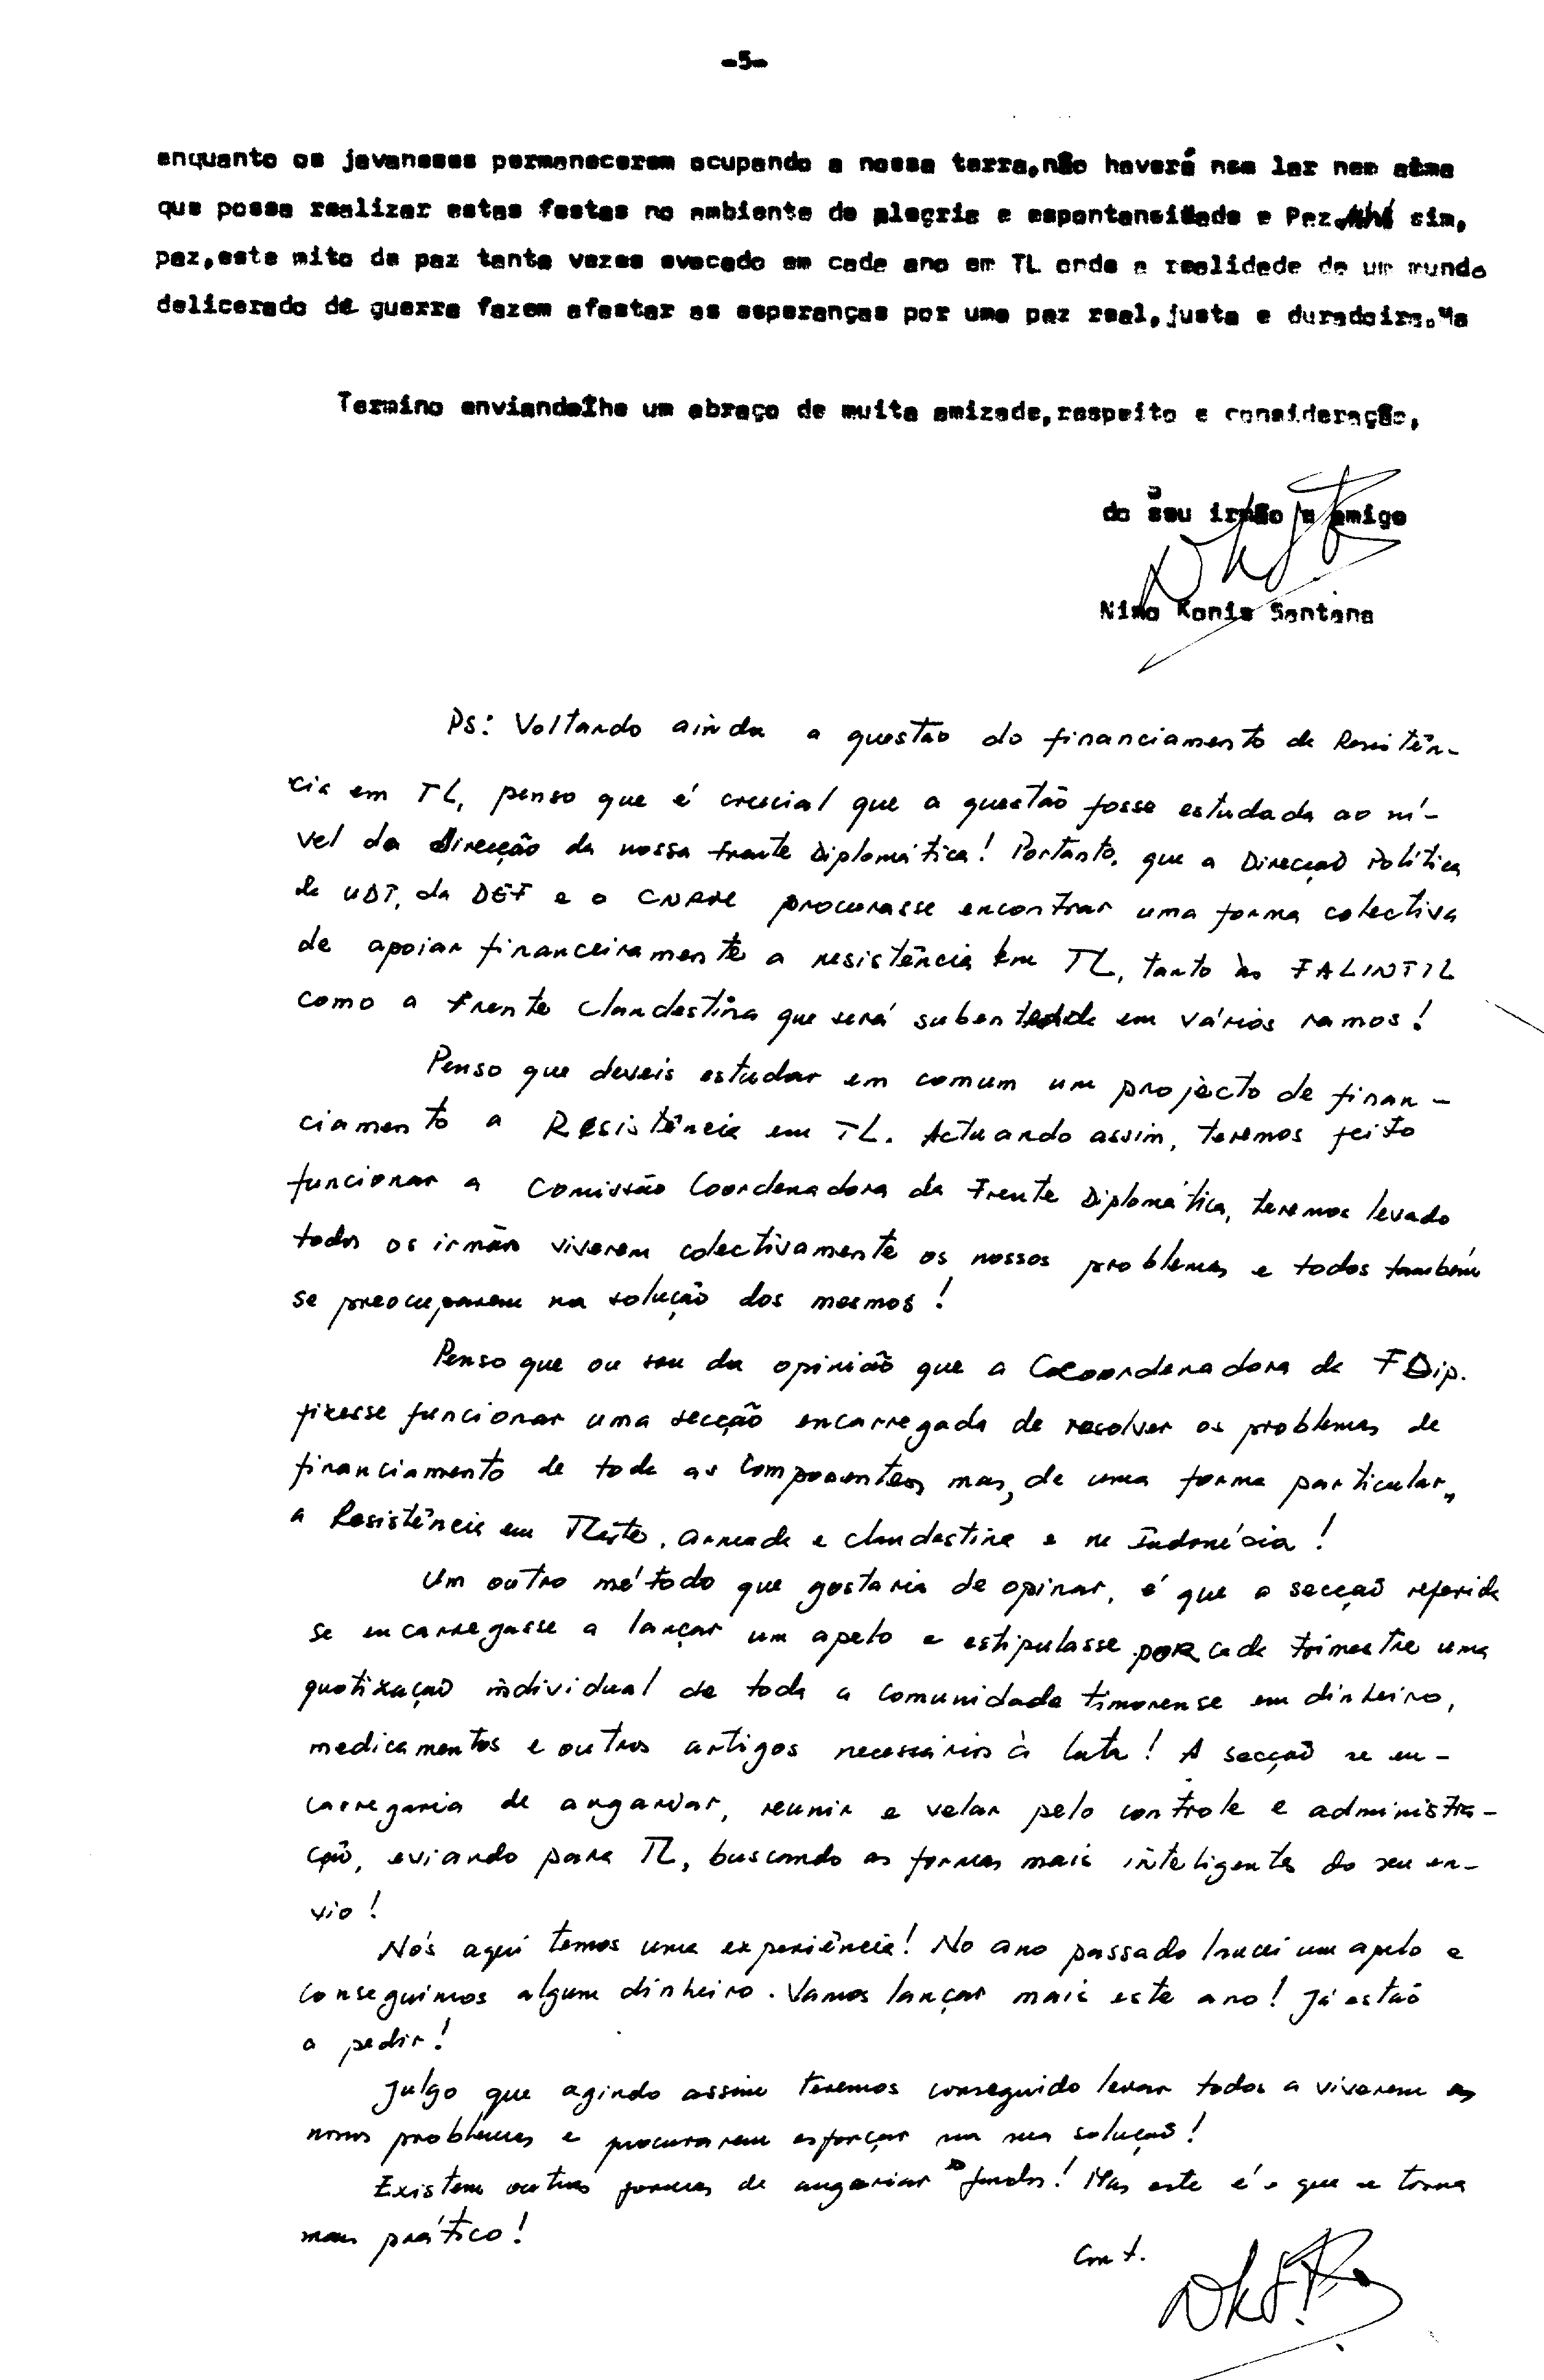 -5-
enquanto os javaneses permanecerem ocupando a nossa terra, não haverá nem lar nem alma
que possa realizar estas festas no ambiente de alegria e espontaneidade e Paz. Ahí sim,
paz, este mito da paz tanta vezes evocado em cada ano em TL onde a realidade de um mundo
delicerado de guerra fazem afastar as esperanças por uma paz real, justa e duradoira.
Termino enviandolhe um abraço de muita amizade, respeito e consideração,
do seu irmão e amigo
Nino Konis Santana
Ps: Voltando ainda a questão do financiamento da Resistên-
cia em TL, penso que é crucial que a questão fosse estudada ao ní-
vel da direcção da nossa frente Diplomática! Portanto, que a Direcção Política
da UDT, da DEF e o CNRM procurasse encontrar uma forma colectiva
de apoiar financeiramente a resistência em TL, tanto às FALINTIL
como a Frente Clandestina que será em vários ramos!
Penso que deveis estudar em comum um projecto de finan-
ciamento a Resistência em TL. Actuando assim, teremos feito
funcionar a Comissão Coordenadora da Frente Diplomática, teremos levado
todos os irmãos viverem colectivamente os nossos problemas e todos também
se preocuparem na solução dos mesmos!
Penso que ou sou da opinião que a Coordenadora da FDip.
fizesse funcionar uma secção encarregada de resolver os problemas de
financiamento de toda as componentes mas, de uma forma particular,
a Resistência em TLeste, armada e clandestina e na Indonésia!
Um outro método que gostaria de opinar, é que a secção referida
se encarregasse a lançar um apelo e estipulasse por cada trimestre uma
quotização individual de toda a comunidade timorense em dinheiro,
medicamentos e outros artigos necessários à luta! A secção se en-
carregaria de angariar, reunir e velar pelo controle e administra-
ção, eviando para TL, buscando as formas mais inteligentes do seu en-
vio!
Nós aqui temos uma experiência! No ano passado lancei um apelo e
conseguimos algum dinheiro. Vamos lançar mais este ano! Já estão
a pedir!
Julgo que agindo assim teremos conseguido levar todos a viverem os
nossos problemas e procurarem esforçar na sua solução!
Existem outras formas de angariar fundos! Mas este é o que se torna
mais prático!
Cmt.